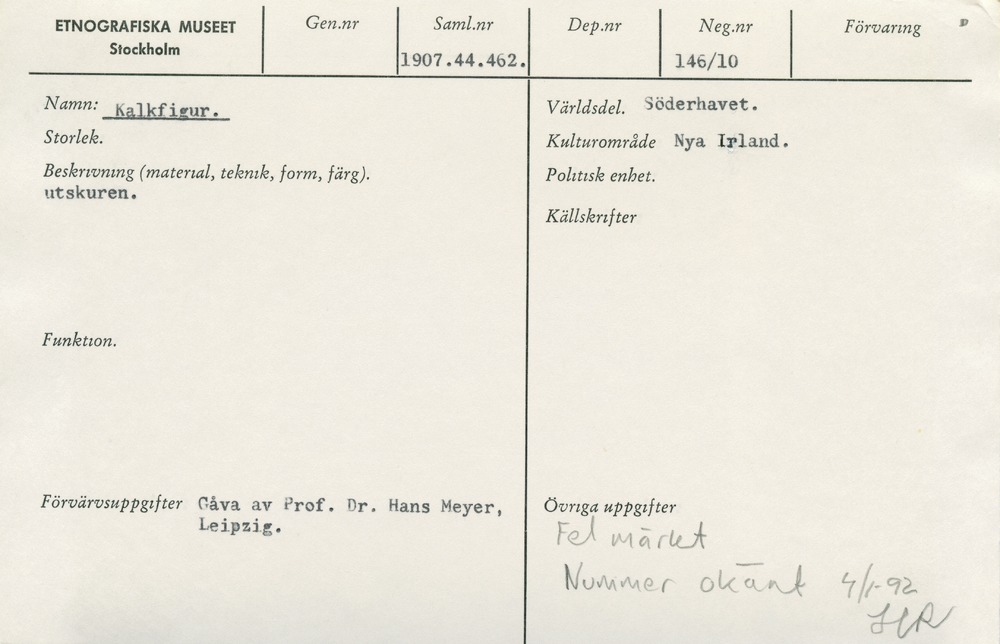 ETNOGRAFISKA MUSEET
Stockholm
Gen.nr
Saml.nr
1907.44.462.
Dep.nr
Neg.nr
146/10
Förvaring
Namn: Kalkfigur.
Storlek.
Beskrivning (material, teknik, form, färg).
utskuren.
Funktion.
Förvärvsuppgifter Gåva av Prof. Dr. Hans Meyer,
Leipzig.
Världsdel. Söderhavet.
Kulturområde Nya Irland.
Politisk enhet.
Källskrifter
Övriga uppgifter
Fel märket
Nummer okänt 4/1-92